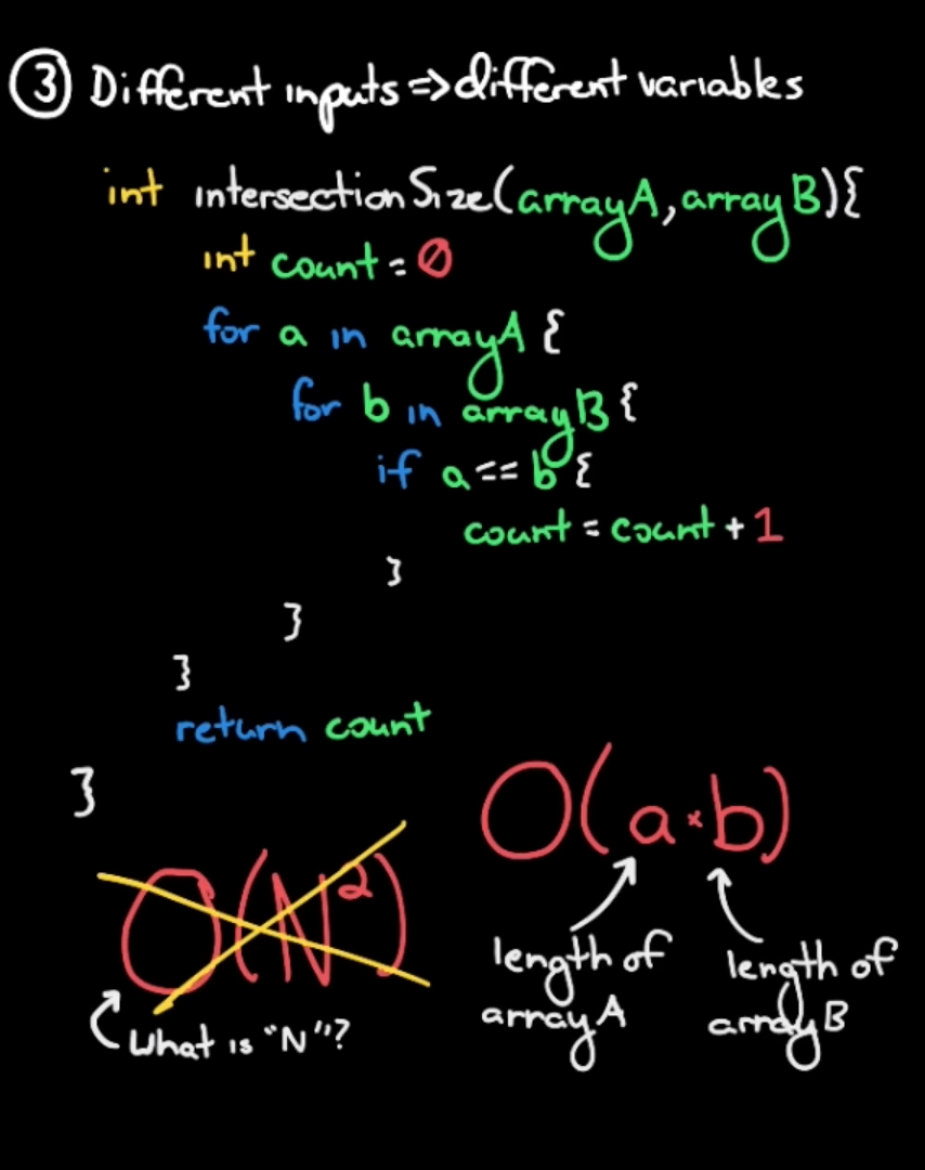 ③ Different inputs => different variables
int intersectionSize(arrayA, arrayB){
int count = 0
for a in arrayA {
for b in arrayB {
if a == b {
count = count + 1
}
}
}
return count
}
O(a*b)
O(N²)
length of arrayA
length of arrayB
What is "N"?